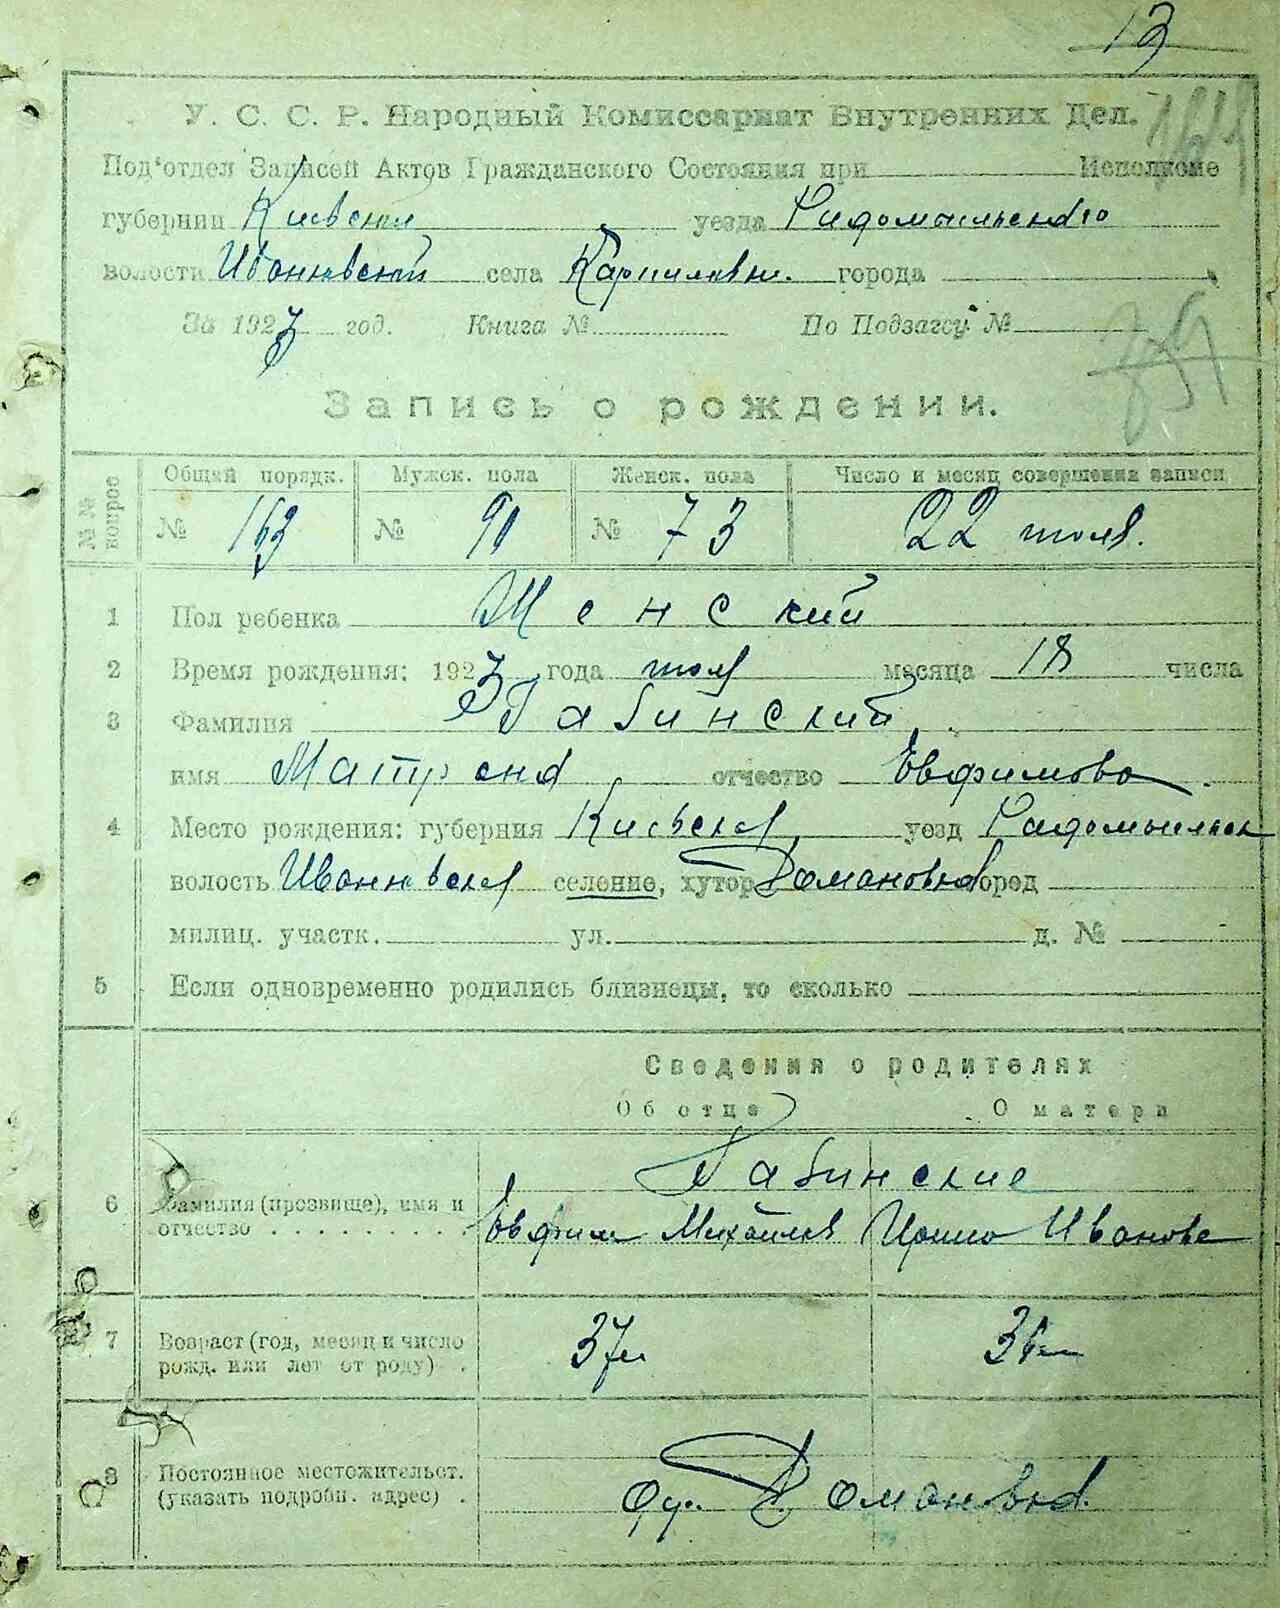 13
У. С. С. Р. Народный Комиссариат Внутренних Дел.
Под'отдел Записей Актов Гражданского Состояния при Исполкоме
губернии Киевской уезда Радомысльского
волости Иванковской села Карпиловки. города
За 1923 год. Книга № По Подзагсу №
Запись о рождении.
№№ вопрос Общий порядк. Мужск. пола Женск. пола Число и месяц совершения записи
№ 163 № 90 № 73 22 июля.
1 Пол ребенка Женский
2 Время рождения: 1923 года июля месяца 18 числа
3 Фамилия Бабинский
имя Матрона отчество Евфимова
4 Место рождения: губерния Киевская, уезд Радомысльск
волость Иванковская селение, хутор Домановка город
милиц. участк. ул. д. №
5 Если одновременно родились близнецы, то сколько
Сведения о родителях
Об отце О матери
Бабинские
6 Фамилия (прозвище), имя и
отчество . . . . . . . . . Евфим Михайлов Ирина Иванова
7 Возраст (год, месяц и число 37 л 36 л
рожд. или лет от роду) .
8 Постоянное местожительст.
(указать подробн. адрес) . Домановка.